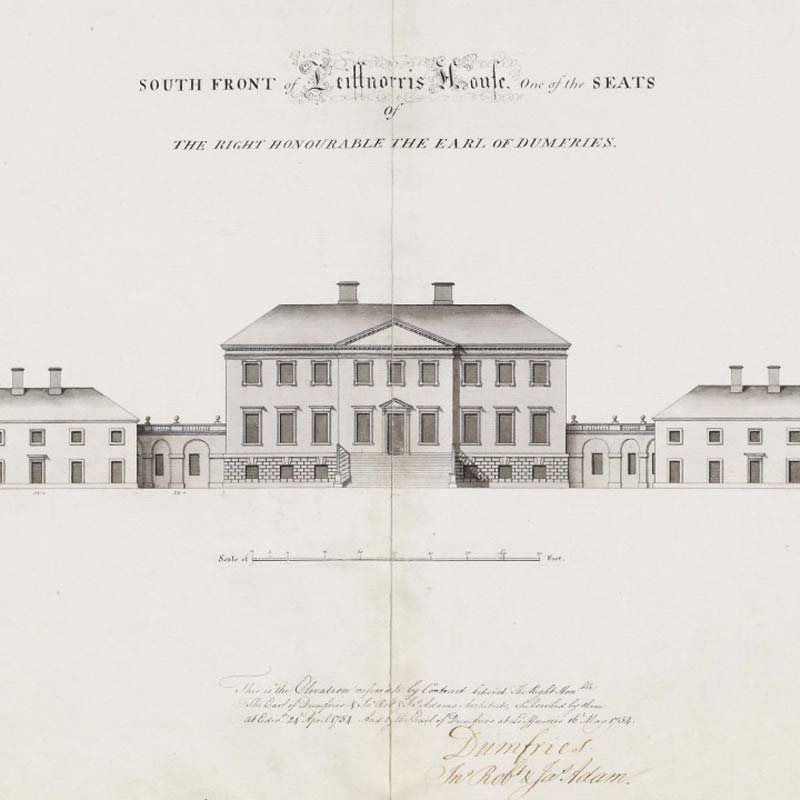 SOUTH FRONT of Leiffnorris House. One of the SEATS
Of
THE RIGHT HONOURABLE THE EARL OF DUMFRIES.
Scale of Feet.
This is the Elevation referred to by Contract betwixt The Right Hon.ble
The Earl of Dumfries & Jn.º Rob.t & Ja.s Adams Architects, Subscribed by them
at Edin.r 24.th April 1754 And by the Earl of Dumfries at Leiffnorris 16.th May 1754.
Dumfries
Jn.º Rob.t & Ja.s Adam.